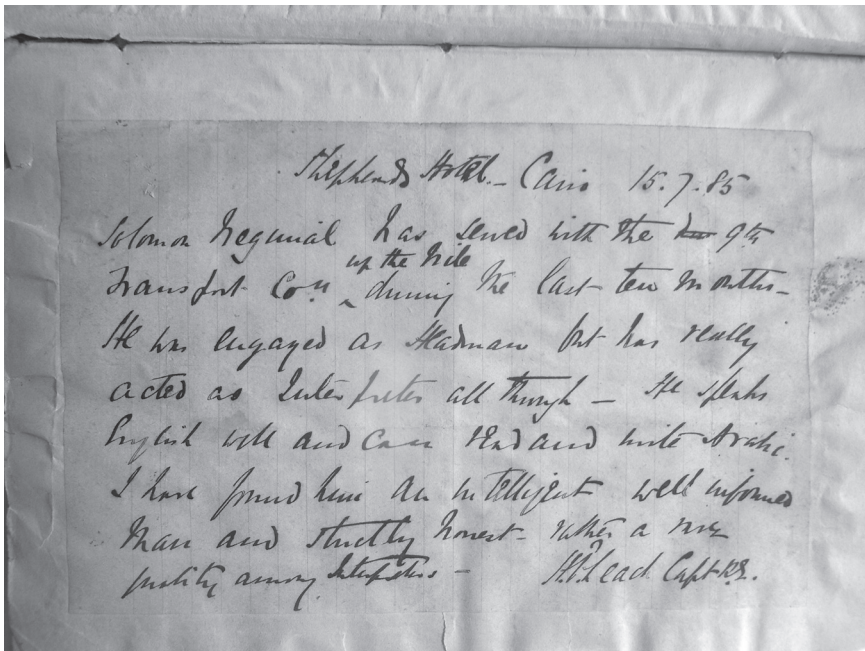 Shepheards Hotel - Cairo 15.7.85
Solomon Negima has served with the 9th
up the Nile
Transport Coy ^ during the last ten months -
He was engaged as Headman but has really
acted as Interpreter all through - He speaks
English well and can read and write Arabic.
I have found him an intelligent well informed
man and strictly honest - rather a rare
quality among Interpreters - H.P. Leach Capt R.E.